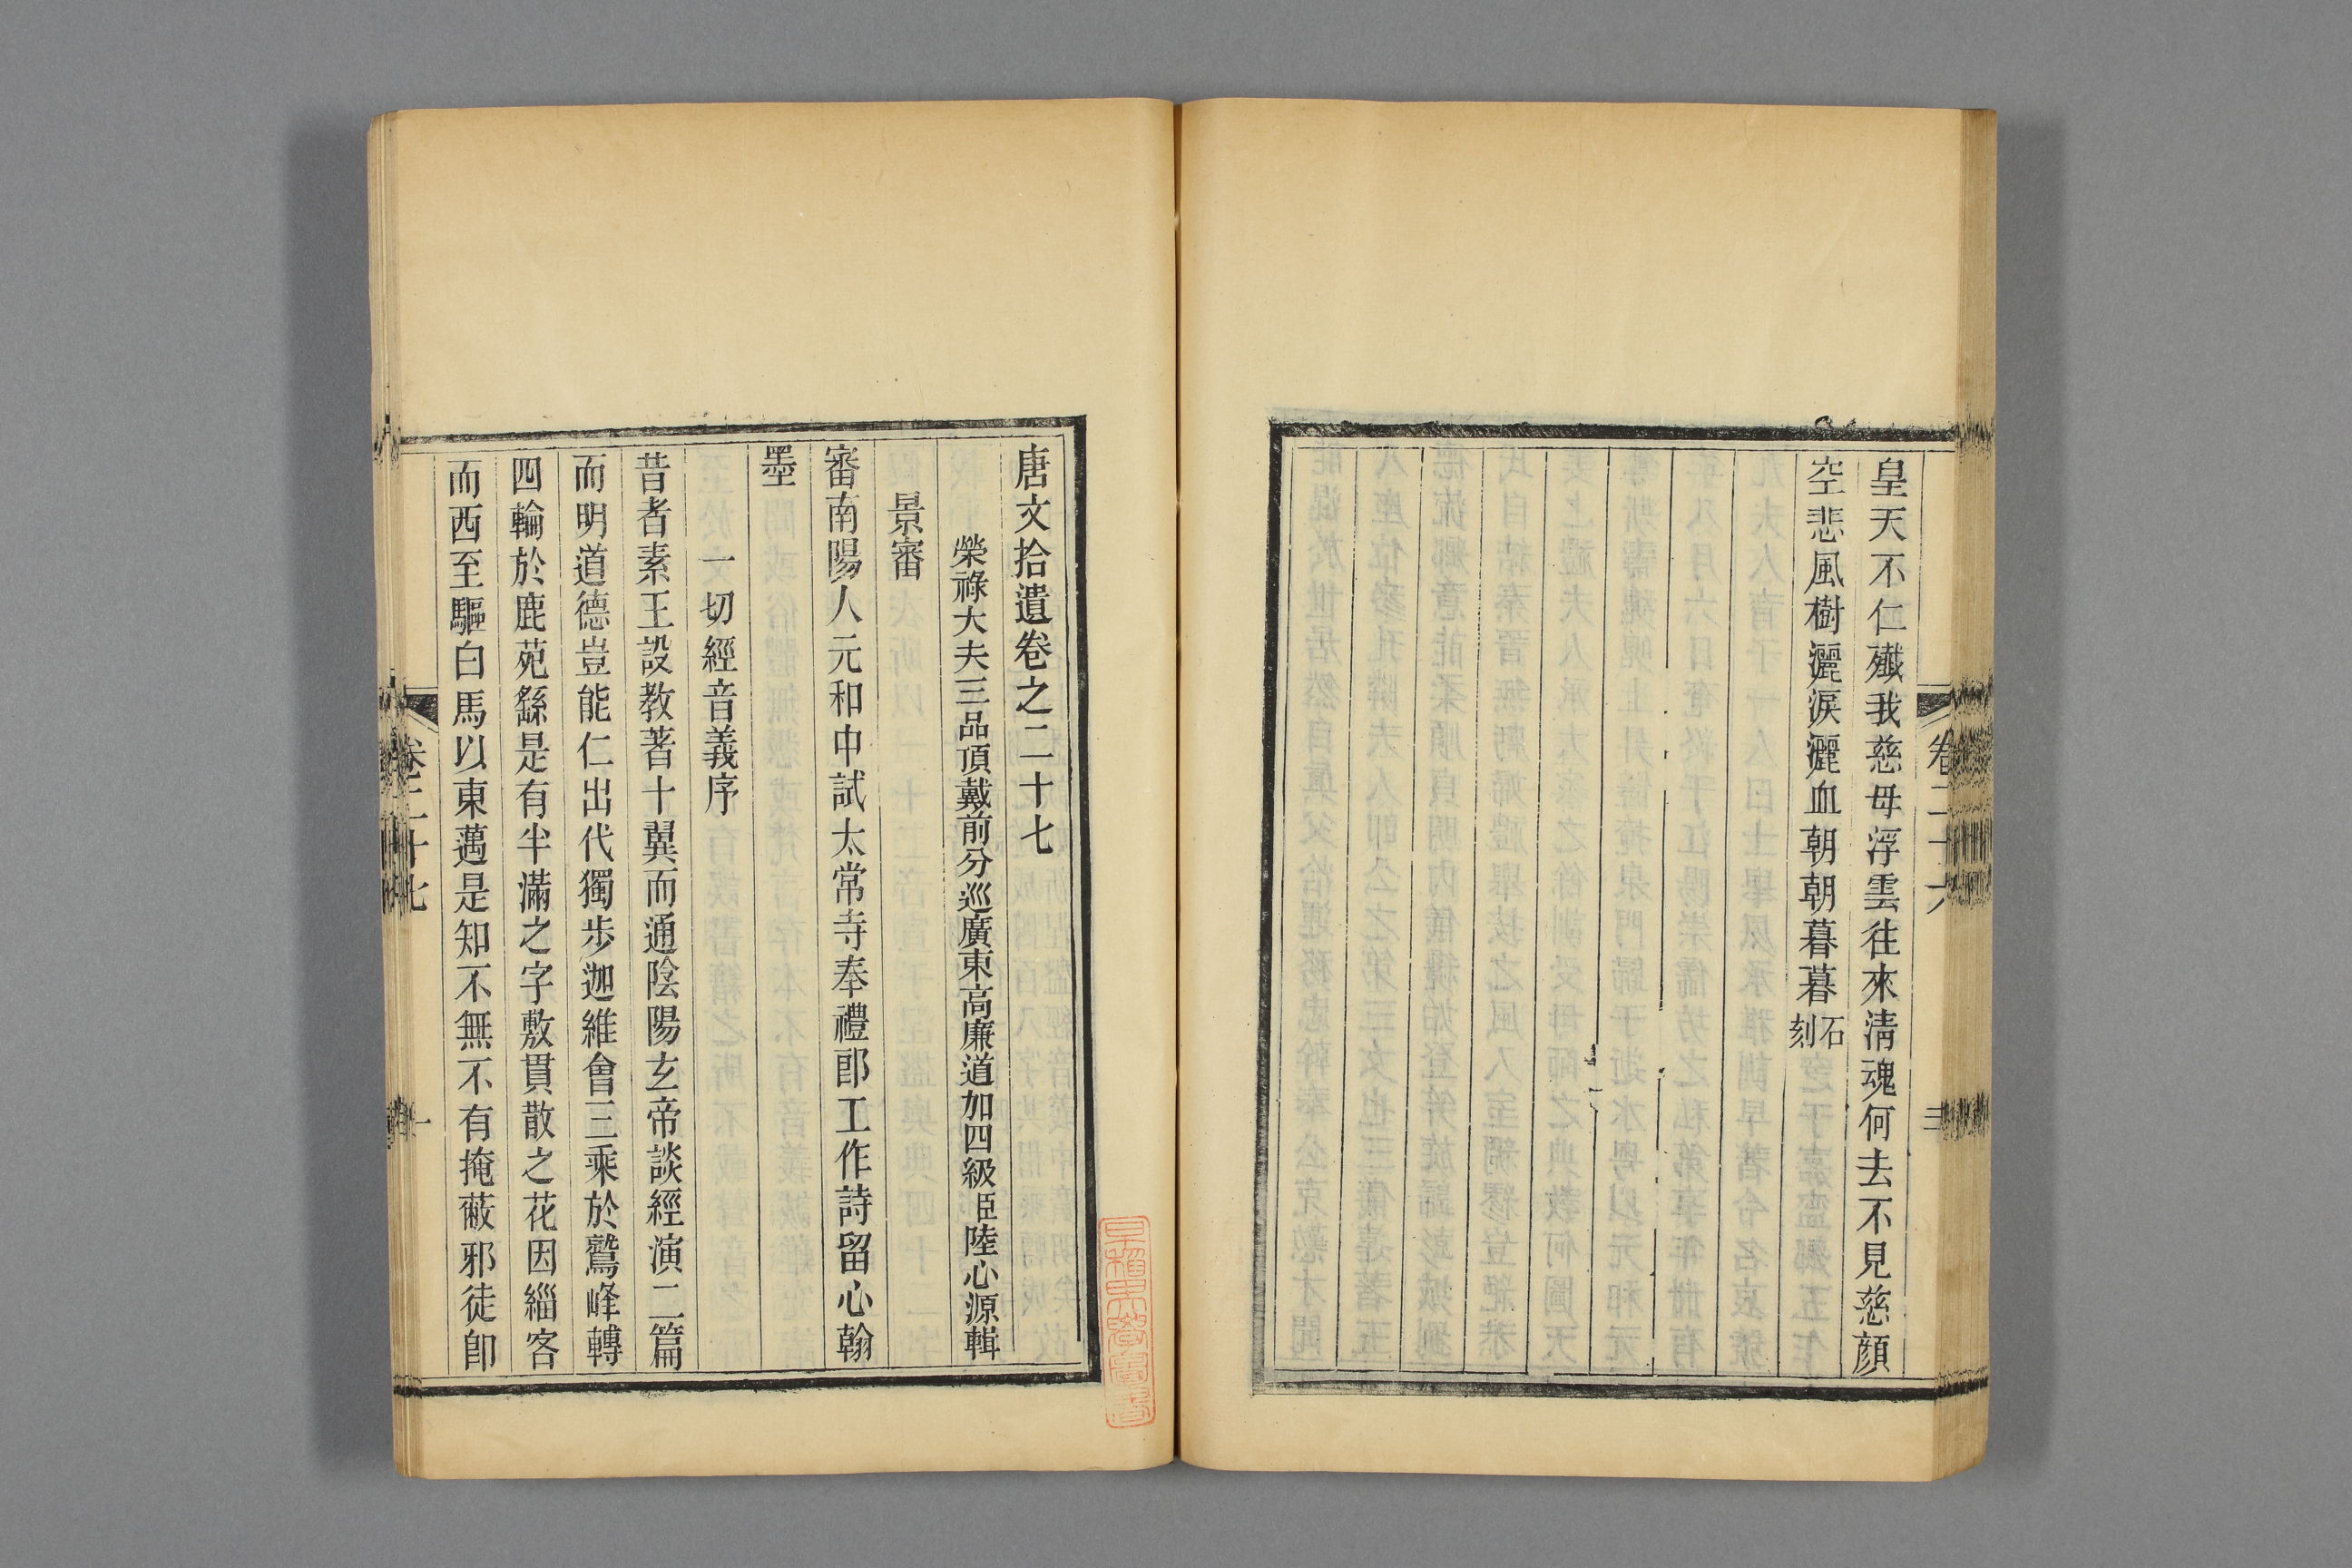 皇天不仁殲我慈母浮雲往來淸魂何去不見慈顔
空悲風樹灑淚灑血朝朝暮暮石刻
唐文拾遺卷之二十七
榮祿大夫三品頂戴前分巡廣東高廉道加四級臣陸心源輯
景審
審南陽人元和中試太常寺奉禮郎工作詩留心翰
墨
一切經音義序
昔者素王設教著十翼而通陰陽玄帝談經演二篇
而明道德豈能仁出代獨步迦維會三乘於鷲峰轉
四輪於鹿苑繇是有半滿之字敷貫散之花因緇客
而西至驅白馬以東邁是知不無不有掩蔽邪徒卽
卷二十七
一